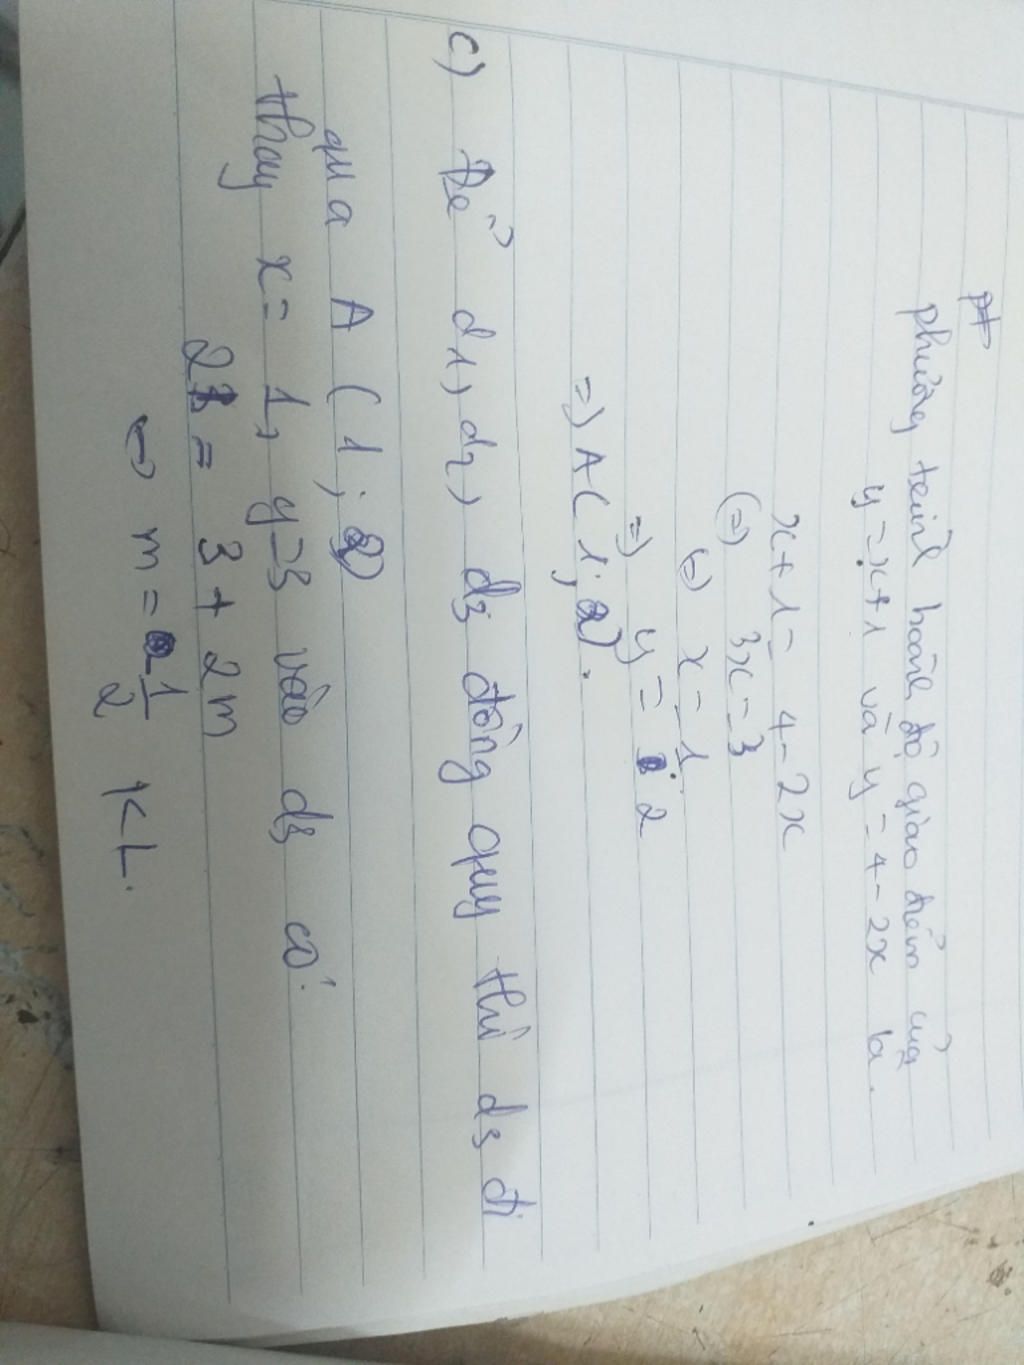 pt
phương trình hoành độ giao điểm của
y = x+1 và y = 4-2x là.
x+1 = 4-2x
(=) 3x = 3
(=) x = 1
=) y = 2
=) A(1; 2).
c) Để d1, d2, d3 đồng quy thì d3 đi
qua A (1; 2)
thay x = 1, y=3 vào d3 có:
2 = 3 + 2m
=) m = -1/2 KL.